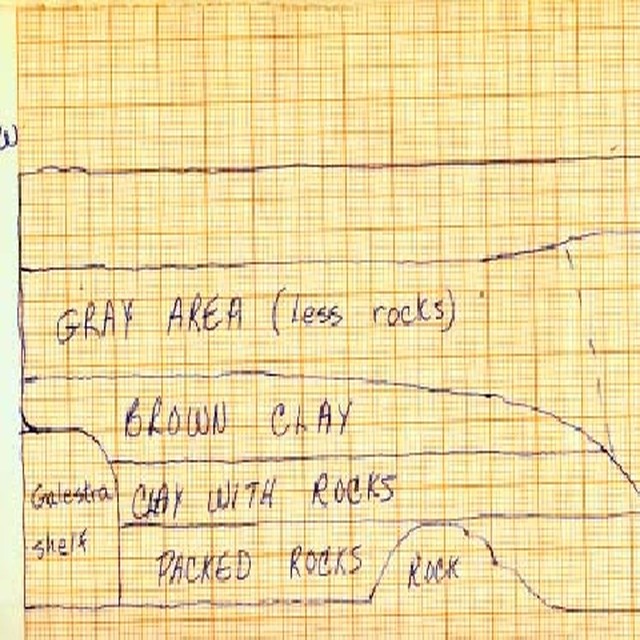 w
GRAY AREA (less rocks)
BROWN CLAY
Galestra
shelf
CLAY WITH ROCKS
PACKED ROCKS
ROCK